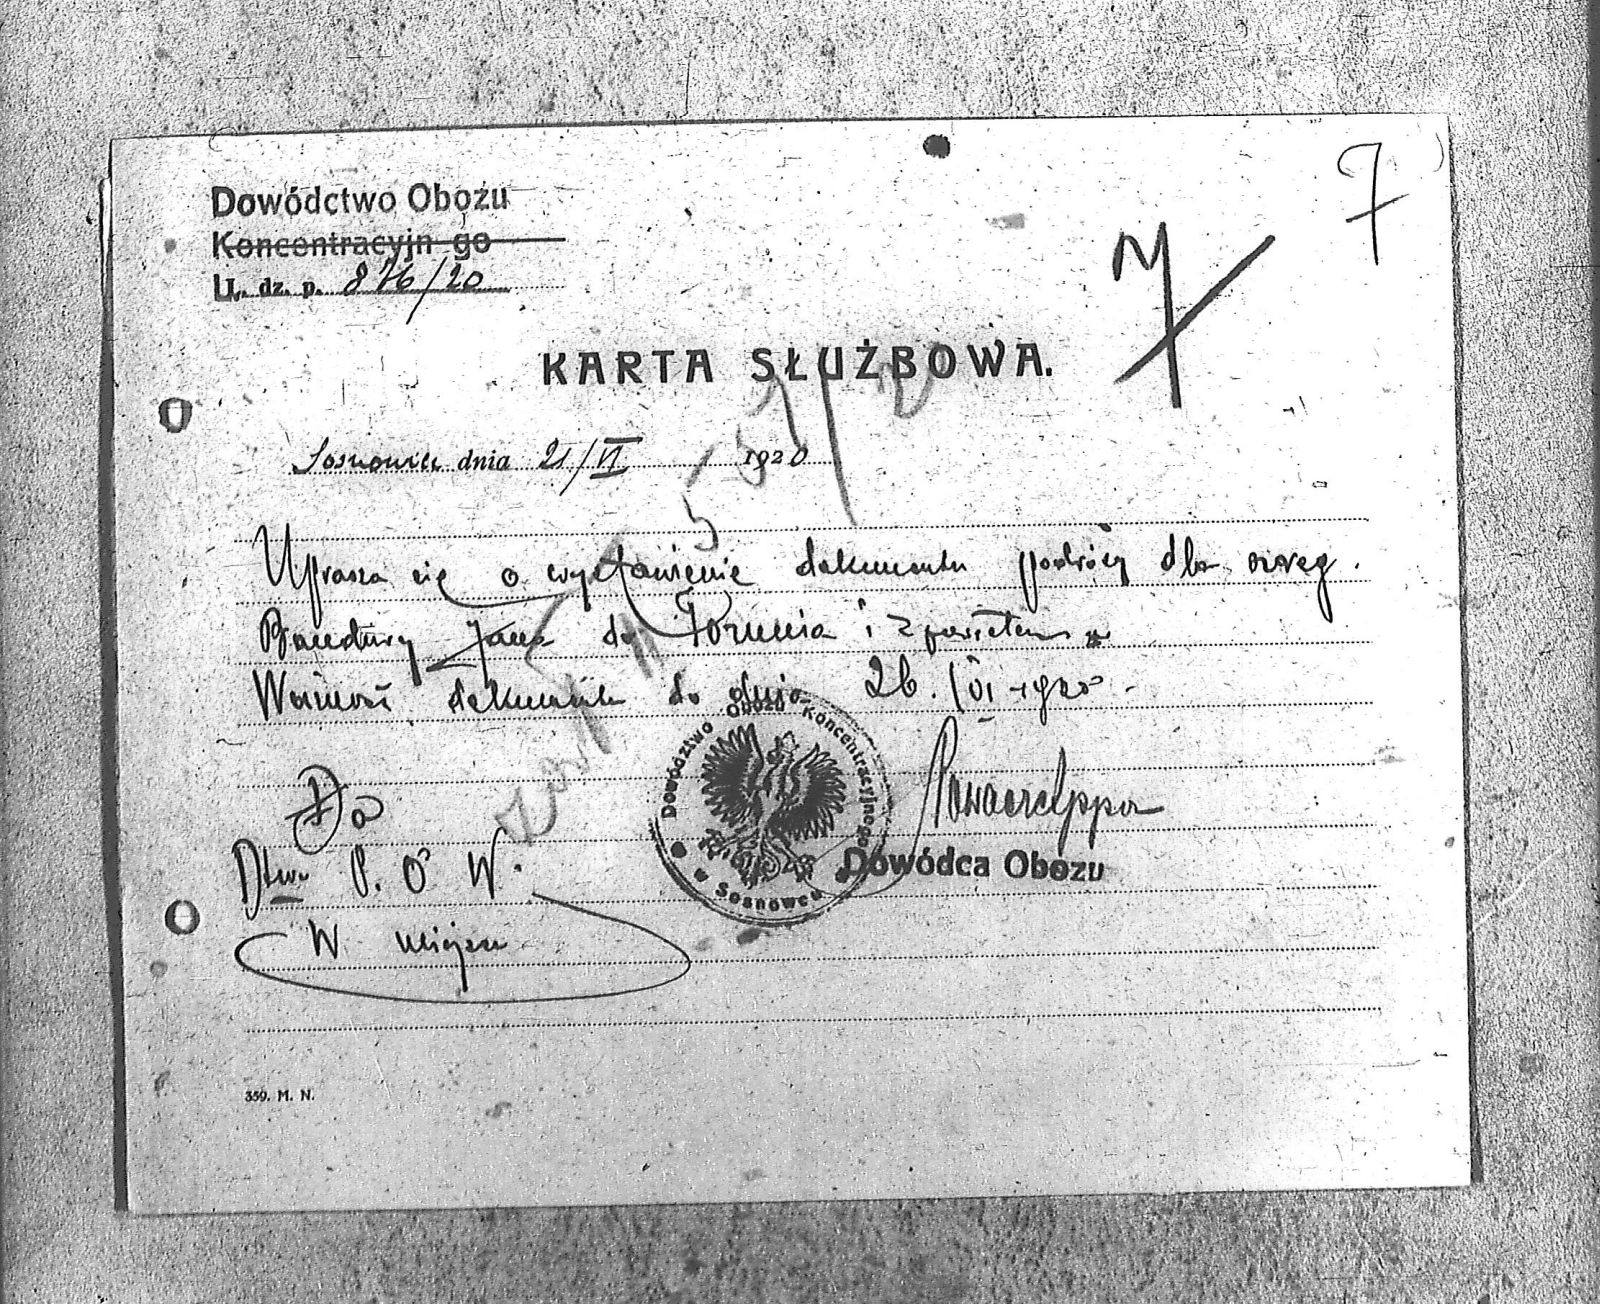 7
Dowództwo Obozu
Koncentracyjn go
L. dz. p. 876/20
KARTA SŁUŻBOWA.
Sosnowiec dnia 21/VI 1920
Uprasza się o wystawienie dokumentu podróży dla szereg.
Bandury Jana do Torunia i z powrotem
Ważność dokumentu do dnia 26./VI 1920 -
Dowództwo Obozu Koncentracyjnego
w Sosnowcu
Do
Dtwa P. O W.
Dowódca Obozu
W miejscu
359. M. N.